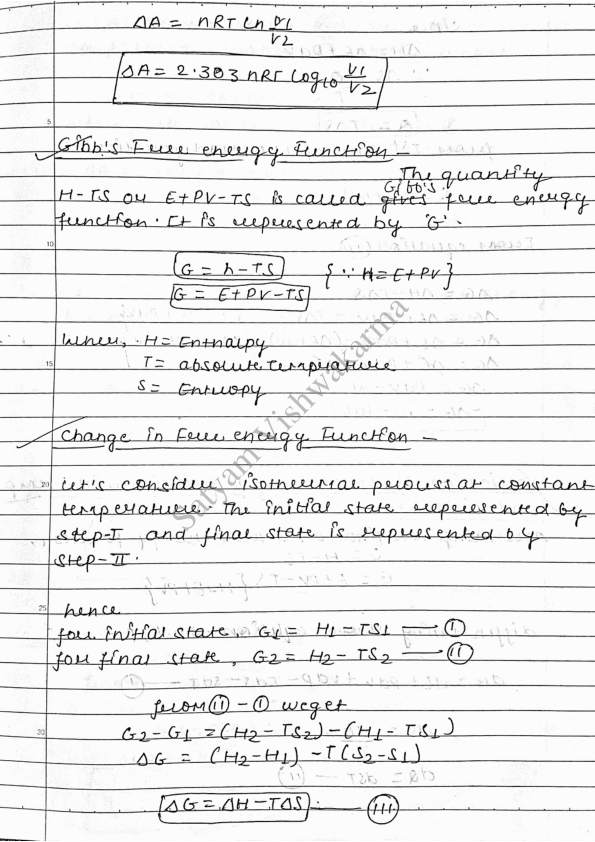 ΔA = nRT ln V1/V2
ΔA = 2.303 nRT log10 V1/V2
5
Gibb's Free energy Function -
The quantity
H-TS or E+PV-TS is called gives Gibb's free energy
function. It is represented by 'G'.
10
G = h-TS {∵ H=E+PV}
G = E+PV-TS
where, H= Enthalpy
15 T= absolute temperature
S= Entropy
Satyam Vishwakarma
Change in Free energy Function -
20 Let's consider isothermal process at constant
temperature. The initial state represented by
step-I and final state is represented by
step-II.
25 hence
for initial state, G1 = H1-TS1 — (I)
for final state, G2 = H2-TS2 — (II)
from (II) - (I) we get
30 G2-G1 =(H2-TS2)-(H1-TS1)
ΔG = (H2-H1) -T(S2-S1)
ΔG = ΔH-TΔS — (III)